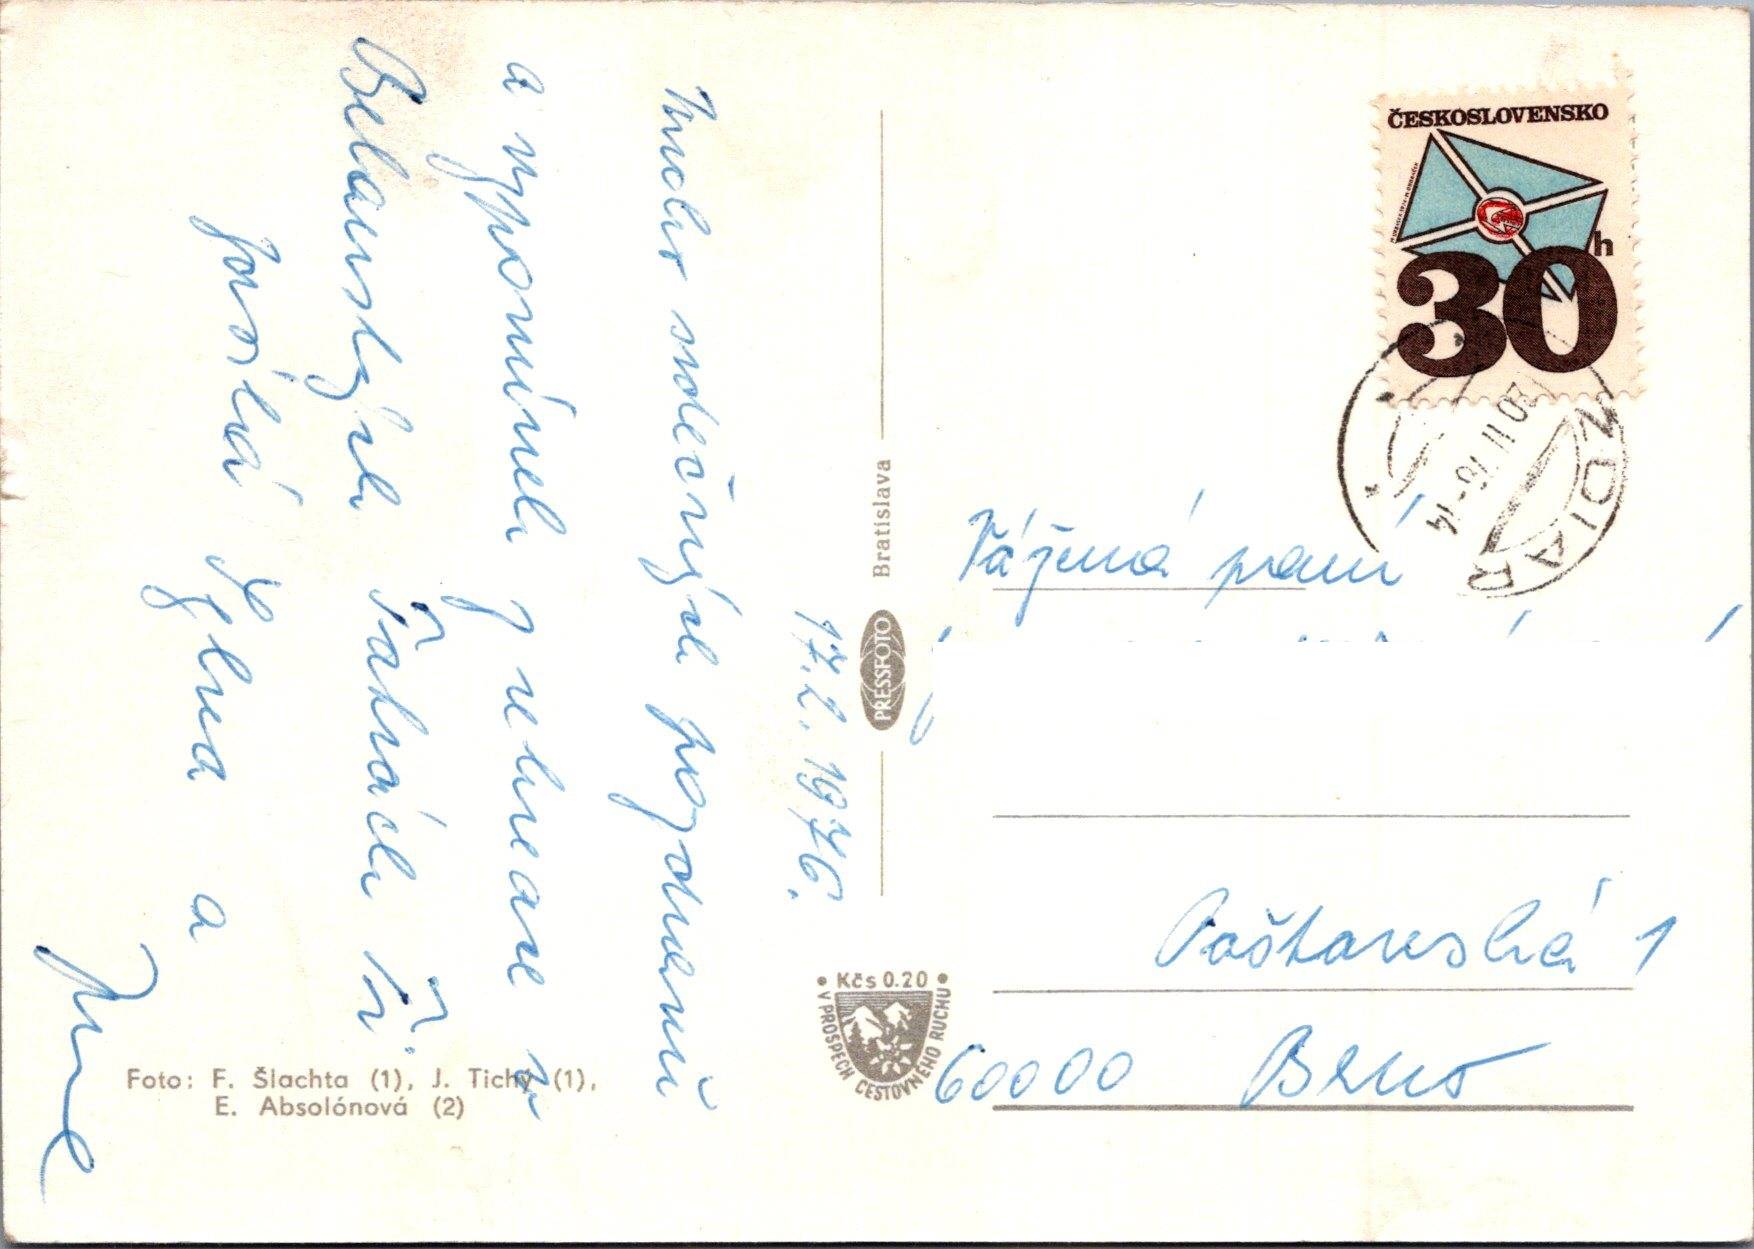 17.2.1976.
Mnoho srdečných pozdravů
a vzpomínek z rekreace v
Belanských Tatrách Ti
posílá
a
ČESKOSLOVENSKO
30
h
20 II 76-14
Bratislava
PRESSFOTO
Vážená paní
Kčs 0.20
V PROSPECH CESTOVNÉHO RUCHU
Poštovská 1
60000 Brno
Foto: F. Šlachta (1), J. Tichý (1),
E. Absolónová (2)